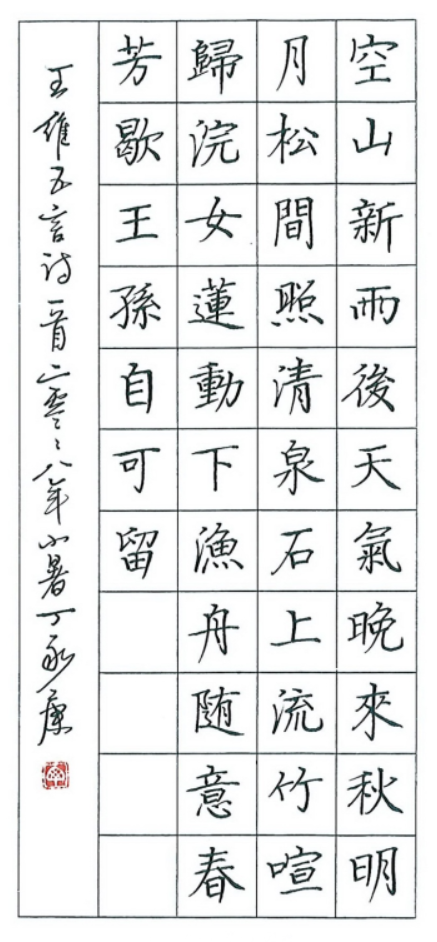 空山新雨後天氣晚來秋明
月松間照清泉石上流竹喧
歸浣女蓮動下漁舟随意春
芳歇王孫自可留
王維五言诗一首二零零八年小暑丁永康